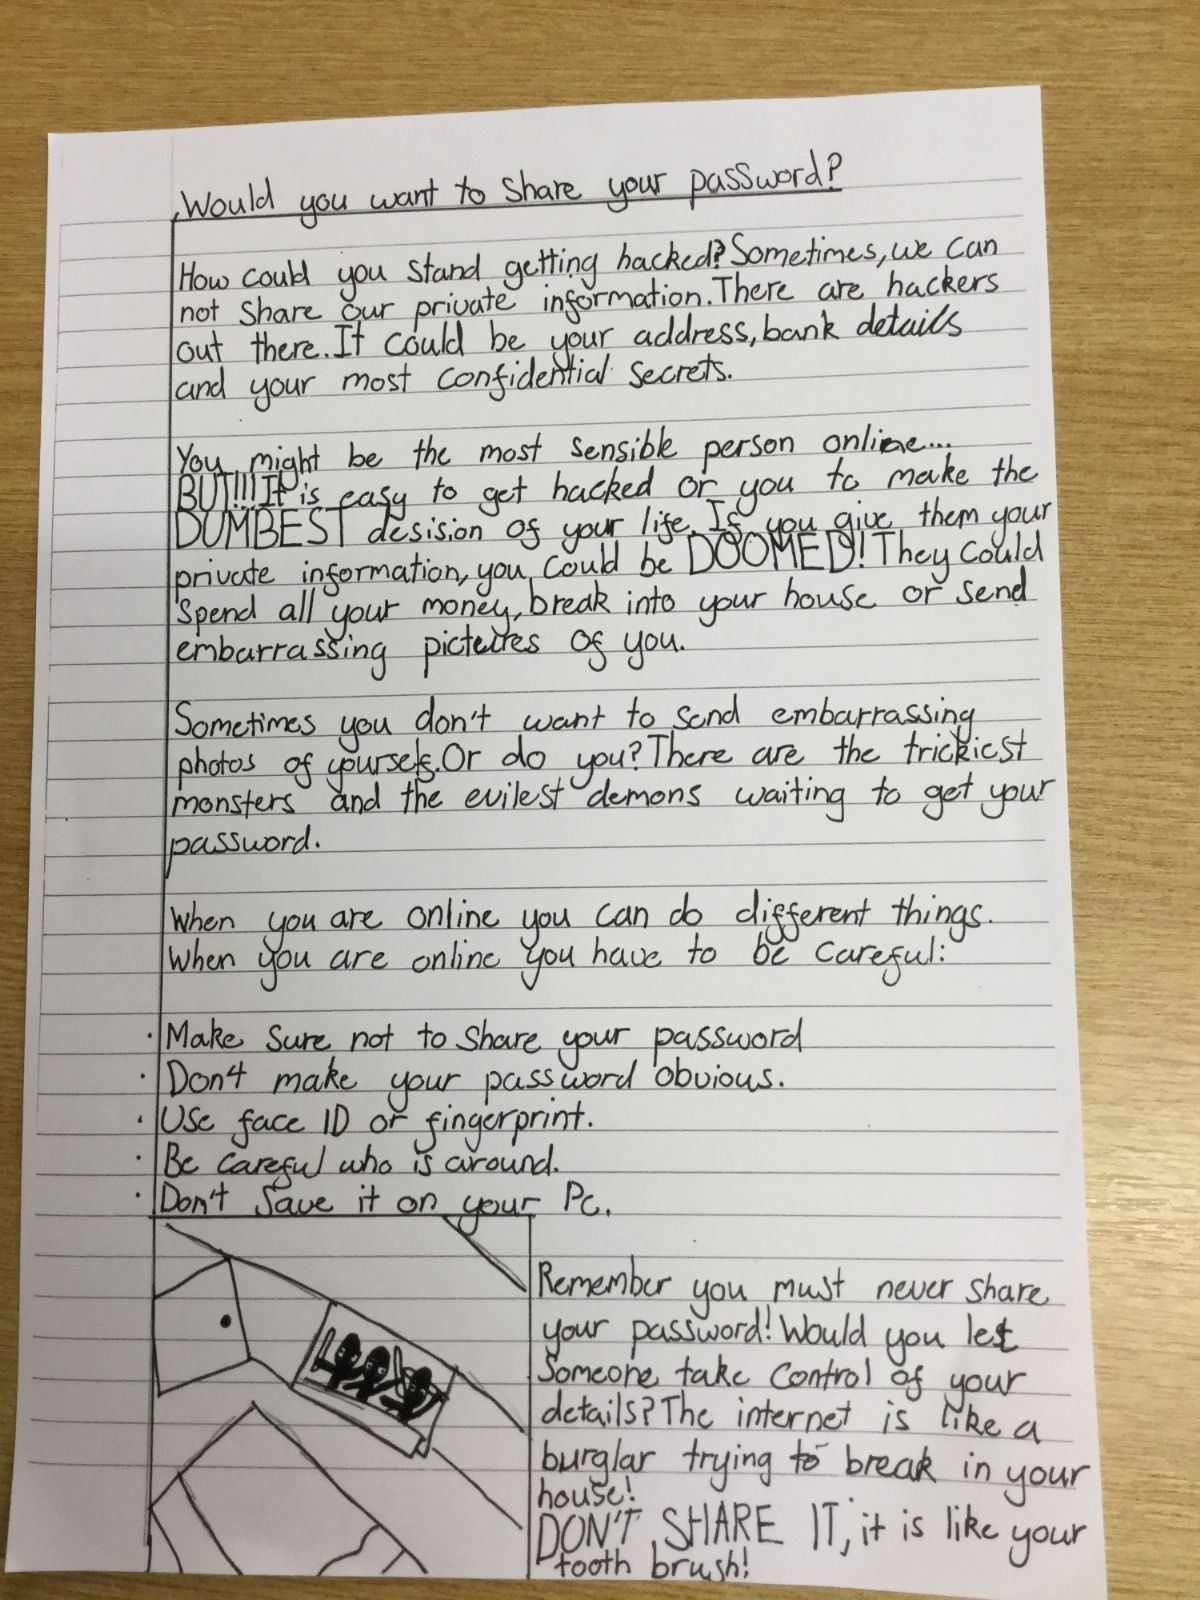 Would you want to share your password?
How could you stand getting hacked? Sometimes, we can
not share our private information. There are hackers
out there. It could be your address, bank details
and your most confidential secrets.
You might be the most sensible person online...
BUT!!! It is easy to get hacked or you to make the
DUMBEST desision of your life. If you give them your
private information, you could be DOOMED! They could
spend all your money, break into your house or send
embarrassing picteures of you.
Sometimes you don't want to send embarrassing
photos of yourself. Or do you? There are the trickiest
monsters and the evilest demons waiting to get your
password.
When you are online you can do different things.
When you are online you have to be careful:
· Make sure not to share your password
· Don't make your password obvious.
· Use face ID or fingerprint.
· Be careful who is around.
· Don't save it on your Pc.
Remember you must never share
your password! Would you let
someone take control of your
details? The internet is like a
burglar trying to break in your
house!
DON'T SHARE IT, it is like your
tooth brush!